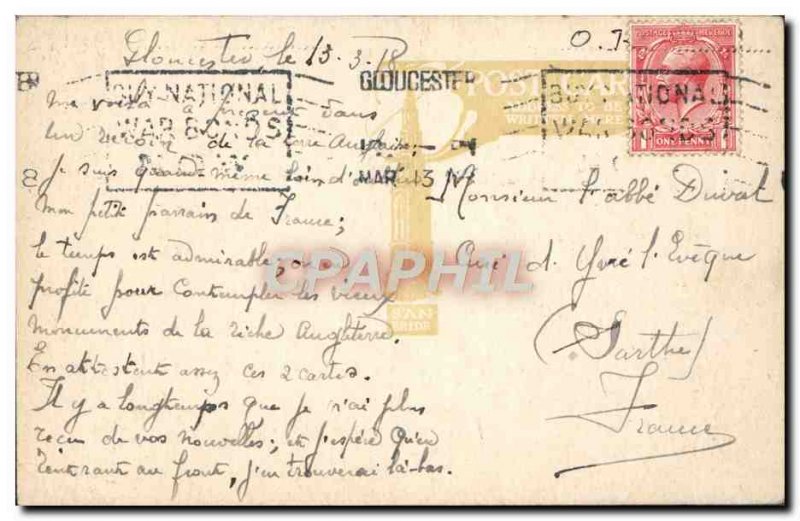 Gloucester, le 13.3.18
O.
POSTAGE REVENUE
ONE PENNY
BUY NATIONAL
WAR BONDS
GLOUCESTER
MAR 13
BUY NATIONAL
WAR BONDS
POST CARD
TO BE
WRITTEN HERE
Me voilà à présent dans
un recoin de la terre Anglaise;
Je suis quand même loin d'
mon petit parrain de France;
le temps est admirable, on en
profite pour contempler les vieux
monuments de la riche Angleterre.
En attestent assez ces 2 cartes.
Il y a longtemps que je n'ai plus
reçu de vos nouvelles; et j'espère qu'en
rentrant au front, j'en trouverai là-bas.
Monsieur l'abbé Duval
Curé d. Yvré l'Evêque
(Sarthe)
France
CPAPHIL